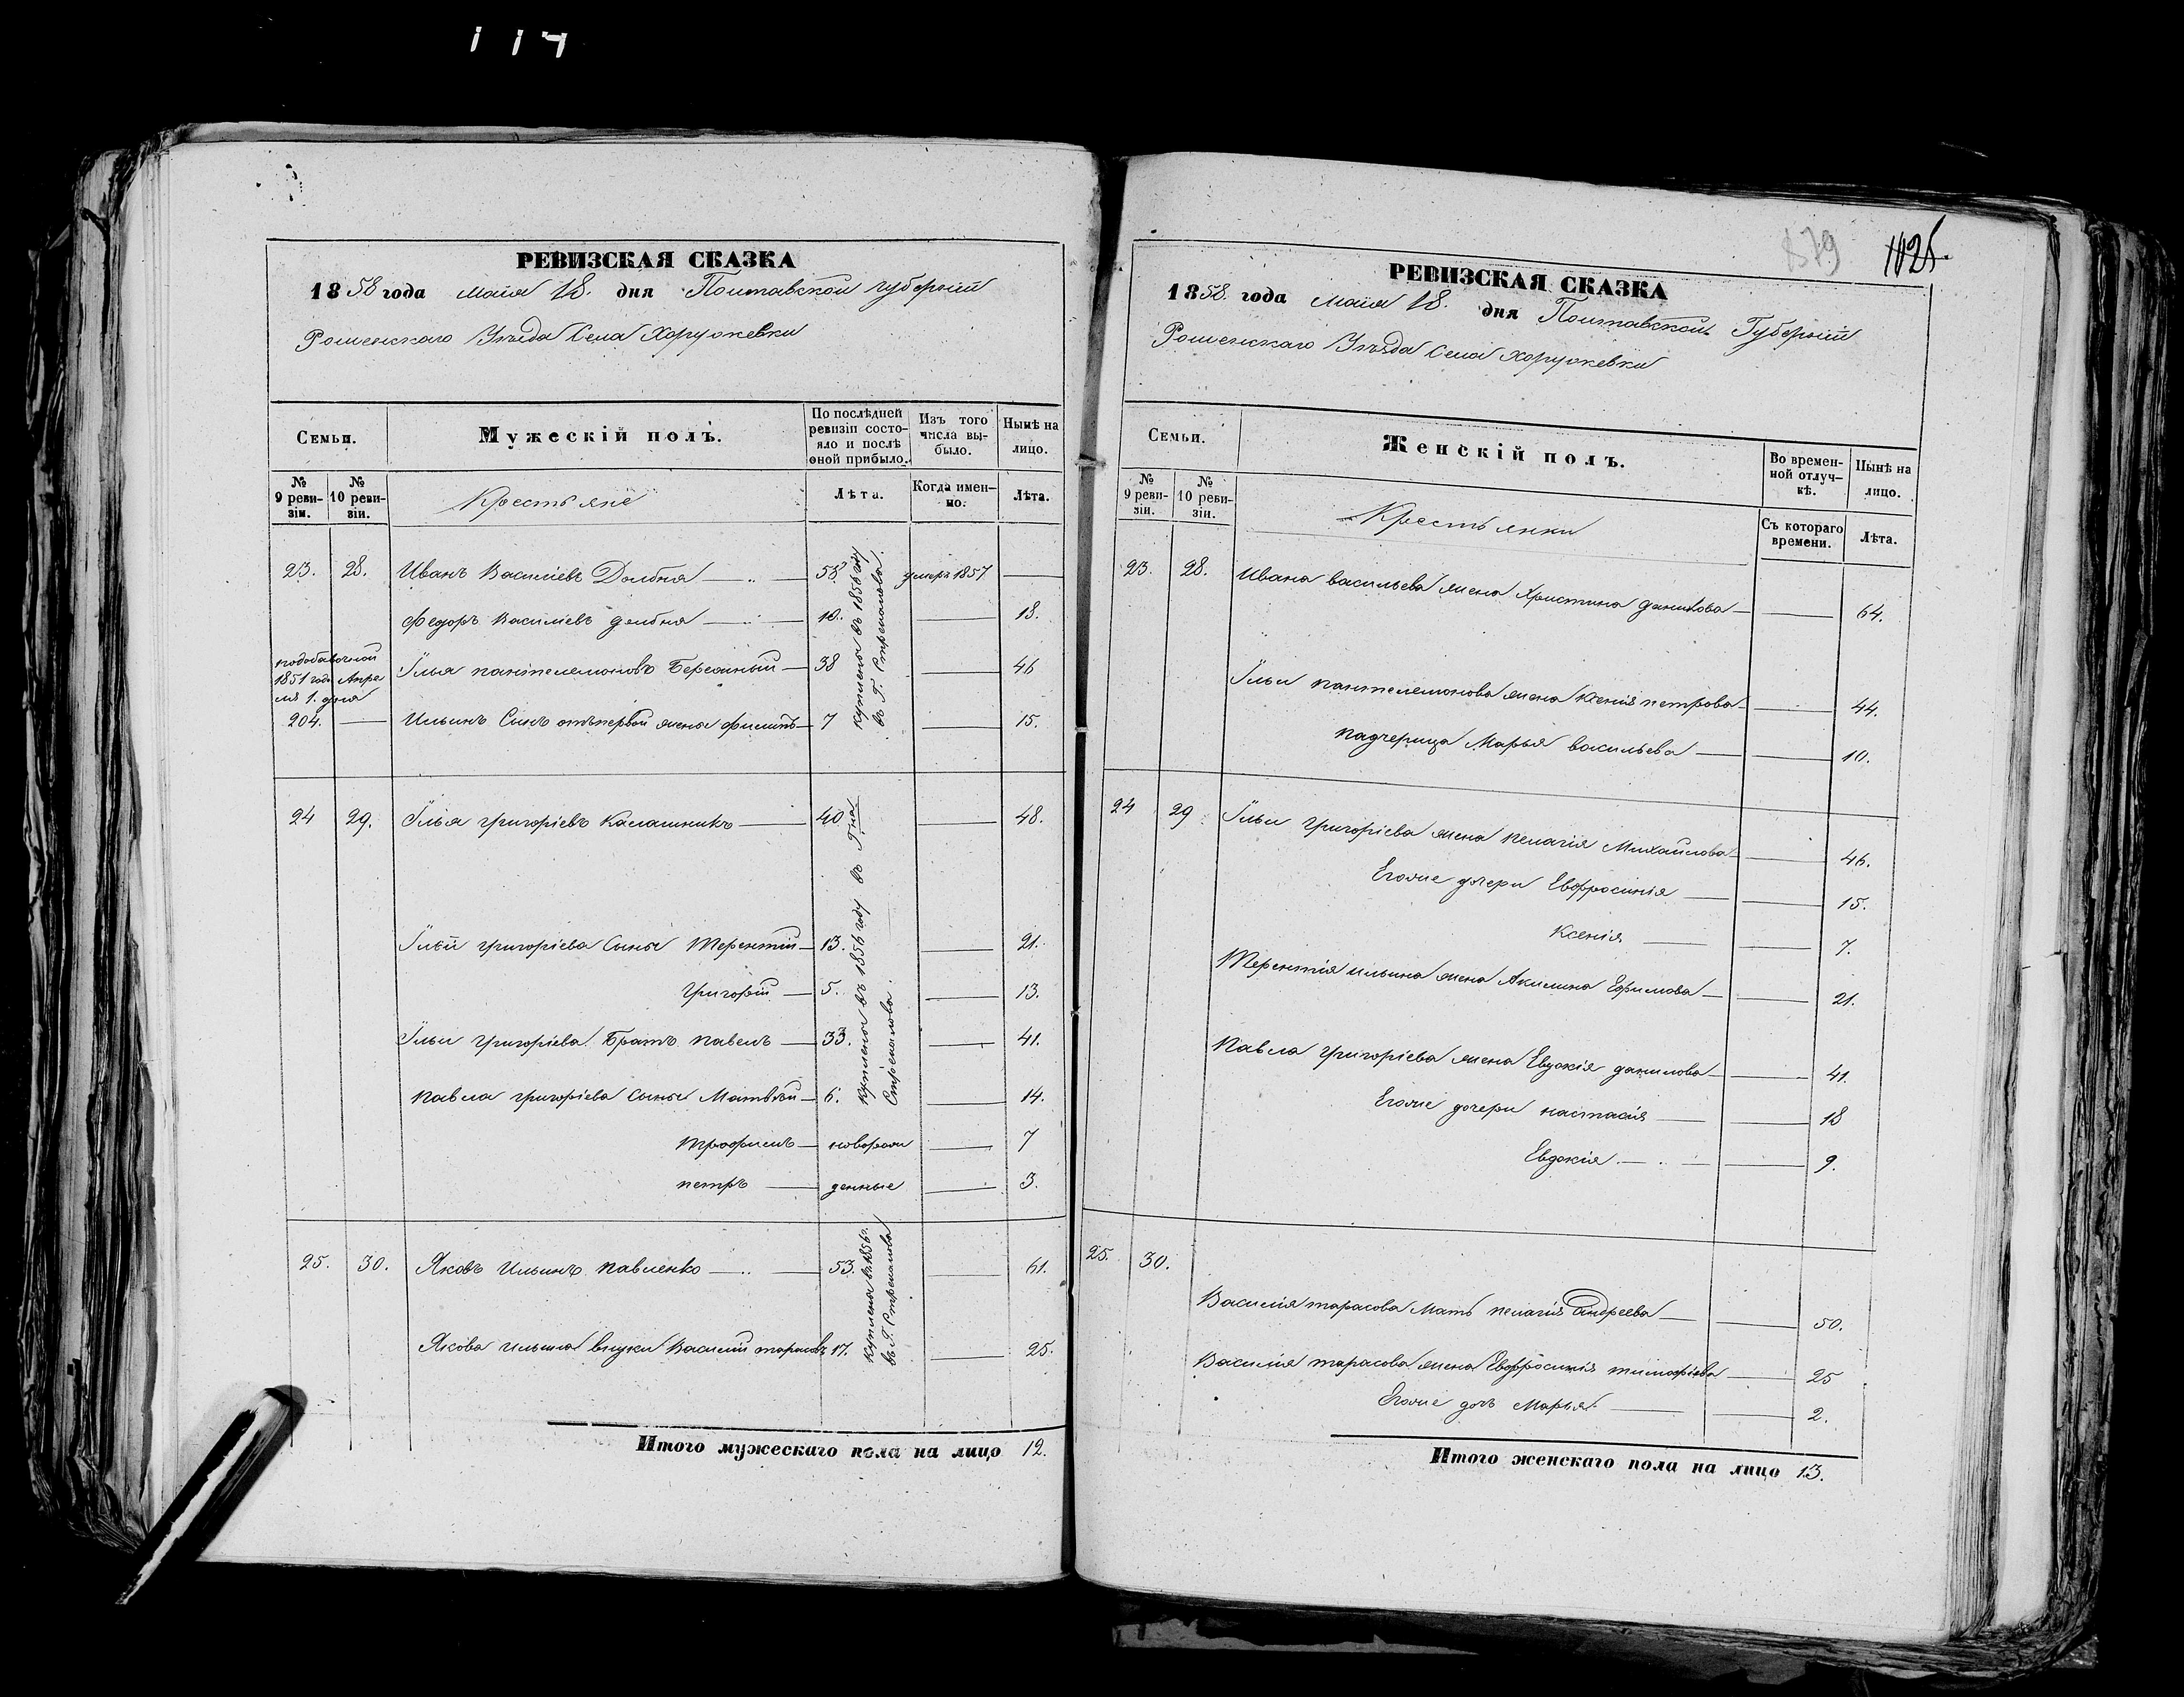 117
РЕВИЗСКАЯ СКАЗКА
1858 года Маія 18. дня Полтавской губерніи
Роменскаго Уѣзда Села Хоружевки
Семьи.
Мужескій полъ.
По послѣдней ревизіи состояло и послѣ оной прибыло.
Изъ того числа выбыло.
Нынѣ на лицо.
№ 9 ревизіи.
№ 10 ревизіи.
Крестьяне
Лѣта.
Когда именно.
Лѣта.
23. 28. Иванъ Василіевъ Долбня 58. умеръ 1857
Федоръ Василіевъ долбня 10. 18.
подобавочной 1851 года Апреля 1. дня
Илья пантелемоновъ Бережный 38 46
204. Ильинъ Сынъ отъ первой жены Филипъ 7 15.
куплены въ 1856 году
въ Г. Стремоухова.
24 29. Илья григоріевъ Калашникъ 40 48.
Ильи григоріева Сыны Терентій 13. 21.
Григорій 5. 13.
Ильи григоріева Братъ павелъ 33. 41.
павла григоріева Сыны Матвѣй 6. 14.
трофимъ новорож 7
петръ денные 3.
куплены въ 1856 году въ Г-на
25. 30. Яковъ Ильинъ павленко 53. 61.
Якова ильина внуки Василій тарасовъ 17. 25.
куплены въ 1856 г.
Итого мужескаго пола на лицо 12.
879
РЕВИЗСКАЯ СКАЗКА
1858. года Маія 18. дня Полтавской Губерніи
Роменскаго Уѣзда Села Хоружевки
Семьи.
Женскій полъ.
Во временной отлучкѣ.
Нынѣ на лицо.
№ 9 ревизіи.
№ 10 ревизіи.
Крестьянки
Съ котораго времени.
Лѣта.
23. 28. Ивана васильева жена Христина данилова 64.
Ильи пантелемонова жена ксенія петрова 44.
падчерица Марья васильева 10.
24 29 Ильи григоріева жена пелагія Михайлова 46.
Егоже дочери Евфросинія 15.
Ксенія 7.
Терентія ильина жена Акилина Ефимова 21.
павла григоріева жена Евдокія данилова 41.
Егоже дочери настасія 18
Евдокія 9.
25. 30.
Василія тарасова Мать пелагія андреева 50.
Василія тарасова жена Евфросинія тимофіева 25
Егоже дочь Марья 2.
Итого женскаго пола на лицо 13.